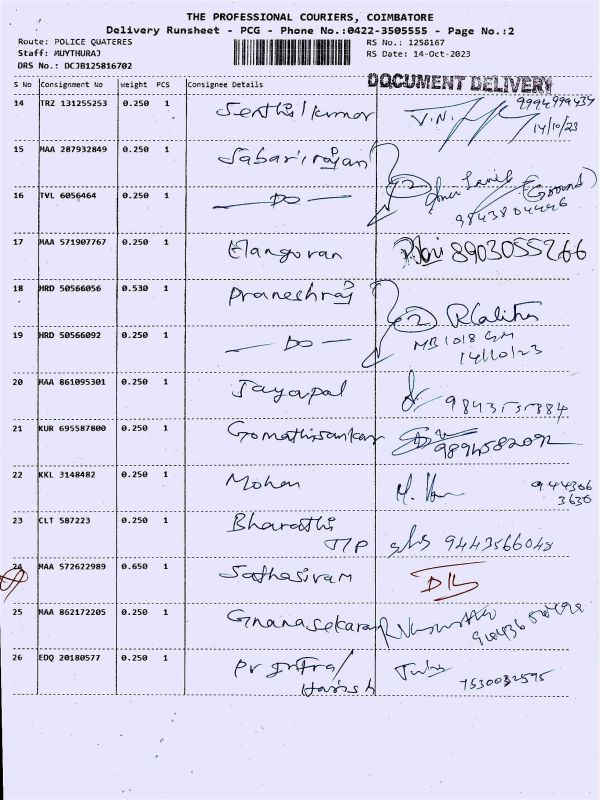 THE PROFESSIONAL COURIERS, COIMBATORE
Delivery Runsheet - PCG - Phone No.:0422-3505555 - Page No.:2
Route: POLICE QUATERES RS No.: 1258167
Staff: MUYTHURAJ RS Date: 14-Oct-2023
DRS No.: DCJB125816702
DOCUMENT DELIVERY
S No Consignment No Weight PCS Consignee Details
14 TRZ 131255253 0.250 1 Senthilkumar V.N. 9994999434
14/10/23
15 MAA 287932849 0.250 1 Sabarirajan
16 TVL 6056464 0.250 1 — DO — 2 (Ground)
9843804446
17 MAA 571907767 0.250 1 Elangovan 8903055266
18 HRD 50566056 0.530 1 Praneshraj
2 R Lalitha
19 HRD 50566092 0.250 1 — DO — MB1018
14/10/23
20 MAA 861095301 0.250 1 Jayapal
21 KUR 695587800 0.250 1 Gomathisankar 9894582092
22 KKL 3148482 0.250 1 Mohan M. 944366
3636
23 CLT 587223 0.250 1 Bharathi
T/P 9443566048
24 MAA 572622989 0.650 1 Sathasivam
25 MAA 862172205 0.250 1 Gnanasekaran
26 EDQ 20180577 0.250 1 /
Harish 7530032595